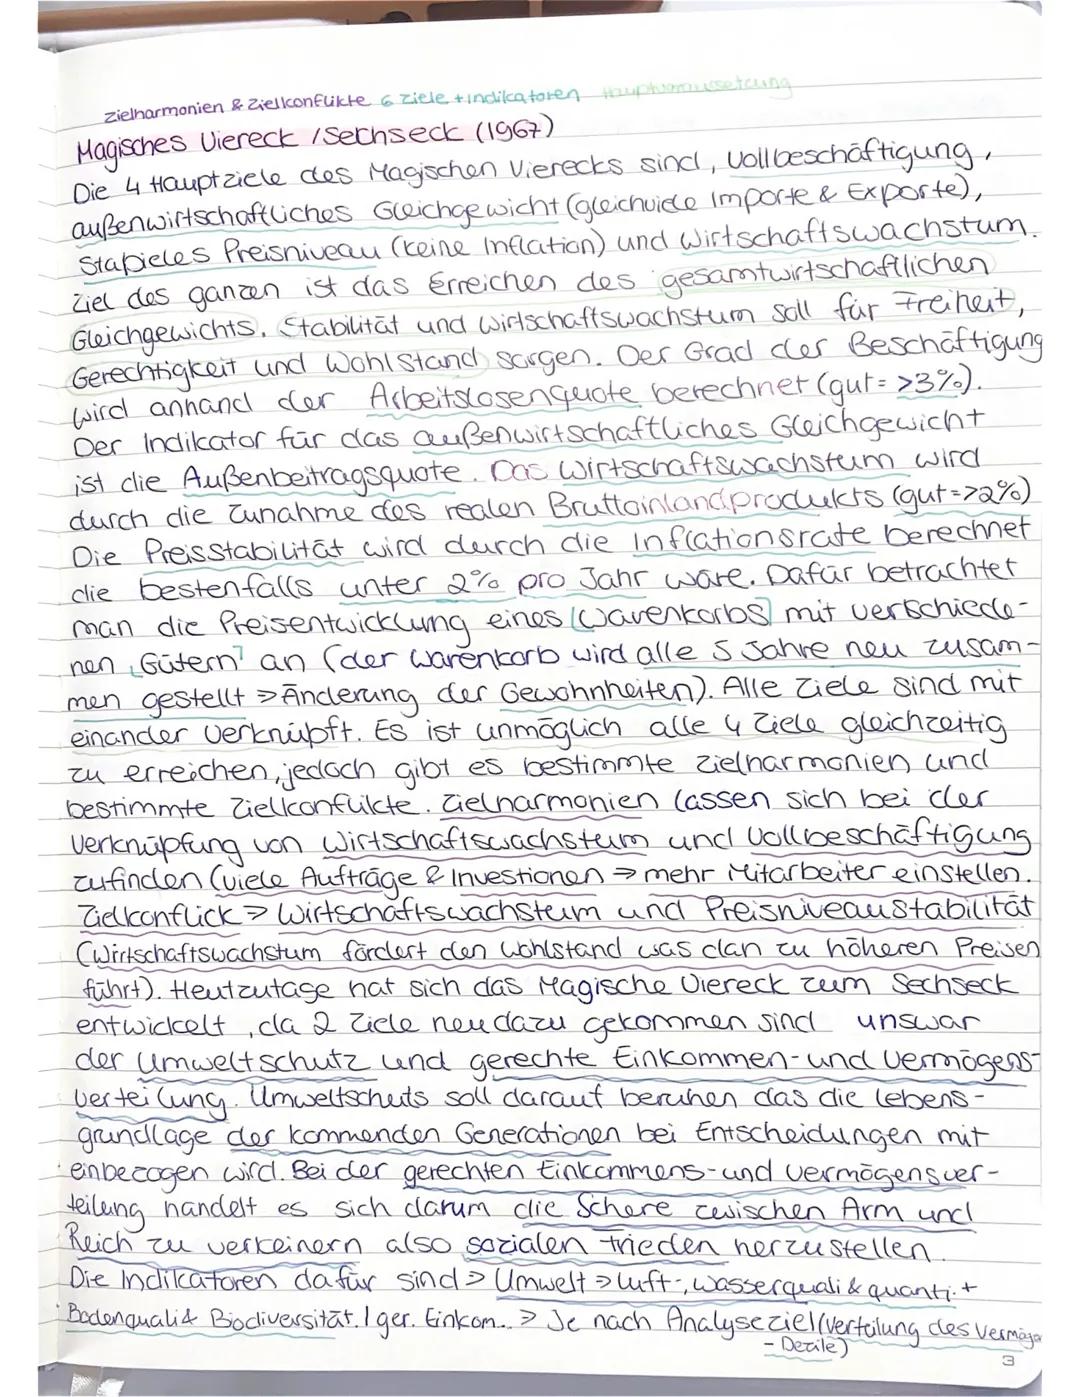 Zielharmonien & Zielkonflikte 6 Ziele + Indikatoren Hauptvoraussetzung
Magisches Viereck / Sechseck (1967)
Die 4 Hauptziele des Magischen Vierecks sind, Vollbeschäftigung,
außenwirtschaftliches Gleichgewicht (gleichviele Importe & Exporte),
Stapieles Preisniveau (keine Inflation) und Wirtschaftswachstum.
Ziel des ganzen ist das Erreichen des gesamtwirtschaftlichen
Gleichgewichts. Stabilität und Wirtschaftswachstum soll für Freiheit,
Gerechtigkeit und Wohlstand sorgen. Der Grad der Beschäftigung
wird anhand der Arbeitslosenquote berechnet (gut = >3%).
Der Indikator für das außenwirtschaftliches Gleichgewicht
ist die Außenbeitragsquote. Das Wirtschaftswachstum wird
durch die Zunahme des realen Bruttoinlandprodukts (gut=>2%)
Die Preisstabilität wird durch die Inflationsrate berechnet
die bestenfalls unter 2% pro Jahr wäre. Dafür betrachtet
man die Preisentwicklung eines [Warenkorbs] mit verschiede-
nen "Gütern" an (der Warenkorb wird alle 5 Jahre neu zusam-
men gestellt => Änderung der Gewohnheiten). Alle Ziele sind mit
einander verknüpft. Es ist unmöglich alle 4 Ziele gleichzeitig
zu erreichen, jedoch gibt es bestimmte Zielharmonien und
bestimmte Zielkonflikte. Zielharmonien lassen sich bei der
Verknüpfung von Wirtschaftswachstum und Vollbeschäftigung
zufinden (viele Aufträge & Investionen => mehr Mitarbeiter einstellen.
Zielkonflick => Wirtschaftswachstum und Preisniveaustabilität
(Wirtschaftswachstum fördert den Wohlstand was dan zu höheren Preisen
führt). Heutzutage hat sich das Magische Viereck zum Sechseck
entwickelt, da 2 Ziele neu dazu gekommen sind unswar
der Umweltschutz und gerechte Einkommen- und Vermögens-
verteilung. Umweltschuts soll darauf beruhen das die lebens-
grundlage der kommenden Generationen bei Entscheidungen mit
einbezogen wird. Bei der gerechten Einkommens- und Vermögensver-
teilung handelt es sich darum die Schere zwischen Arm und
Reich zu verkeinern also sozialen Frieden herzustellen.
Die Indikatoren dafür sind => Umwelt => Luft-, Wasserquali & quanti. +
Bodenquali & Biodiversität. / ger. Einkom.. => Je nach Analyseziel (Vertailung des Vermöge
- Dezile)
3